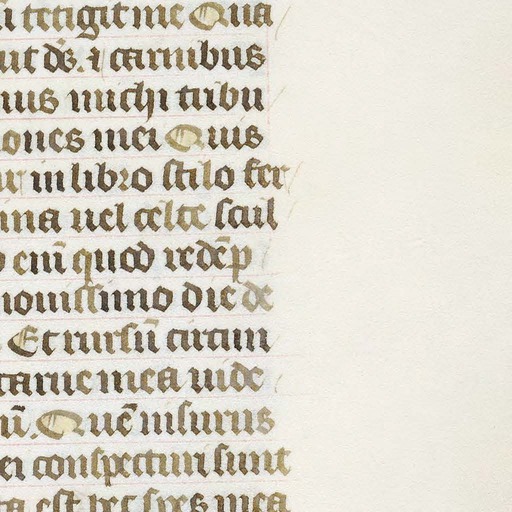 tetigit me Qua
ut ds. ⁊ carnibus
michi tribu
ones mei Quis
in libro stilo fer
vel celte scul
eni̅ quod rede̅p
nouissimo die de
Et rursu̅ circu̅
carne mea vide
Que̅ visurus
ei conspecturi sunt
est hec spes mea